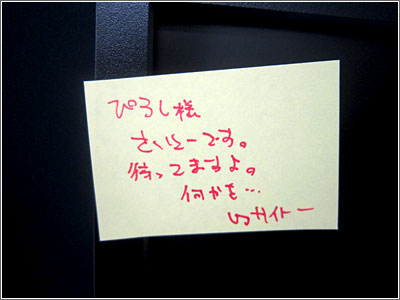 ぴろし様
さいとーです。
待ってますよ。
何かを…
サイトー